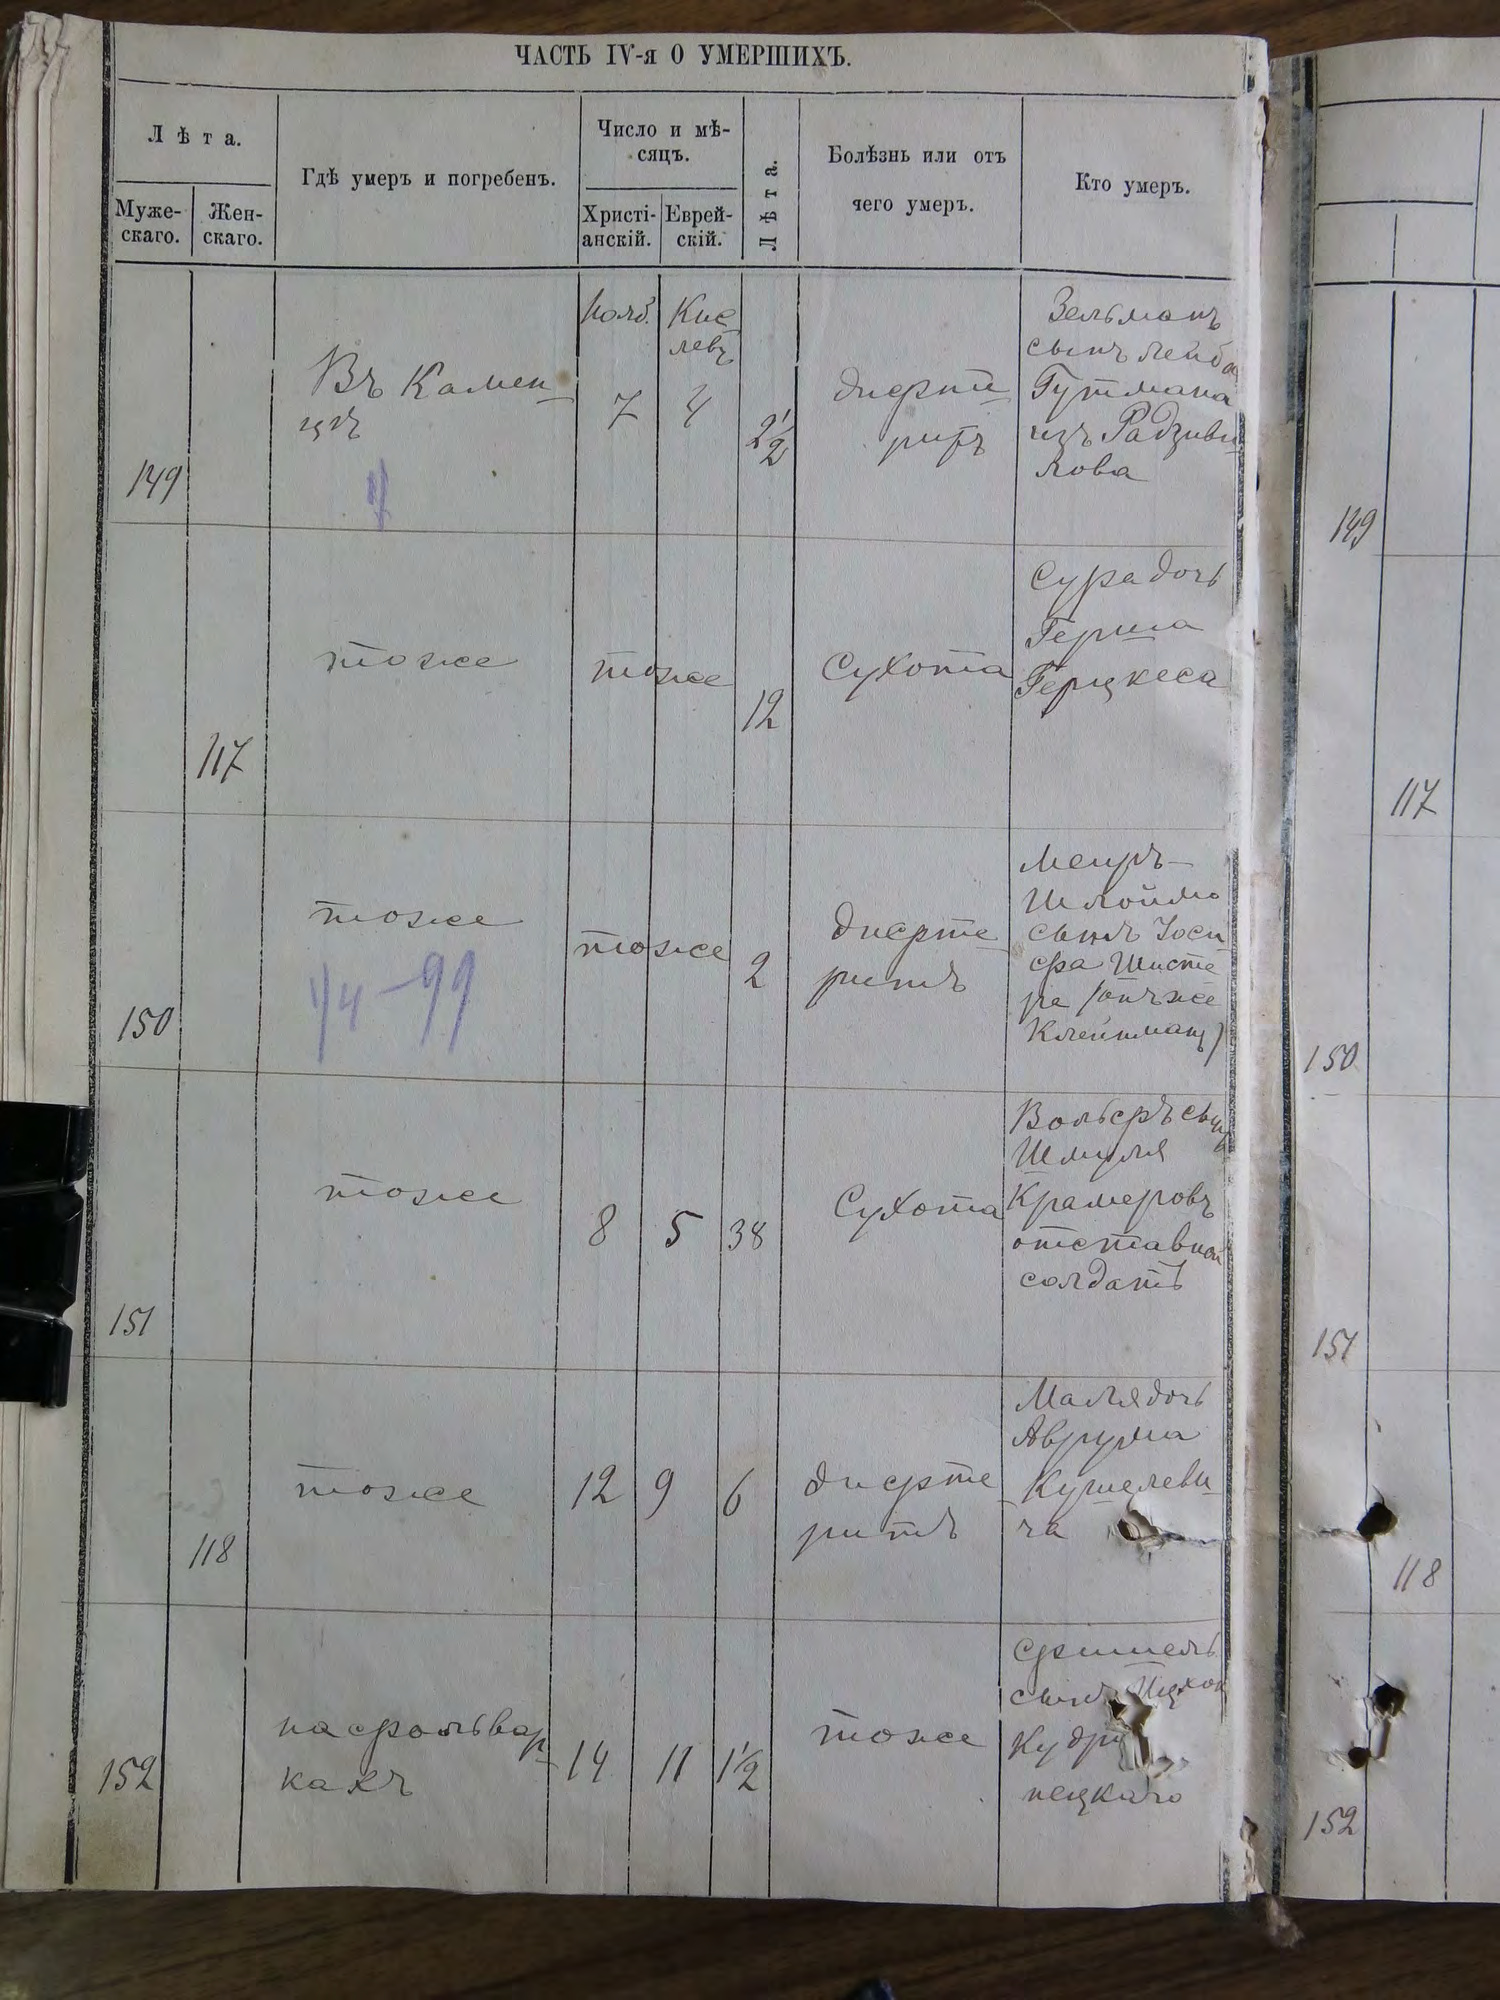 ЧАСТЬ IV-я О УМЕРШИХЪ.
Лѣта.
Муже-
скаго.
Жен-
скаго.
Гдѣ умеръ и погребенъ.
Число и мѣ-
сяцъ.
Христі-
анскій.
Еврей-
скій.
Лѣта.
Болѣзнь или отъ
чего умеръ.
Кто умеръ.
149
Въ Камен-
цѣ
Нояб.
7
Кис-
левъ
4
2 1/2
дифте-
ритъ
Зельманъ
сынъ Лейба
Гутмана
изъ Радзиви-
лова
117
тоже
тоже
12
Сухота
Сура дочь
Герша
Герцкеса
150
тоже
тоже
2
дифте-
ритъ
Меиръ-
Шлойма
сынъ Иоси-
фа Шисте-
ра (онъ же
Клейтманъ)
151
тоже
8
5
38
Сухота
Вольфъ сынъ
Шмуля
Крамеровъ
отставной
солдатъ
118
тоже
12
9
6
дифте-
ритъ
Маля дочь
Аврума
Кушелеви-
ча
152
на фольвар-
кахъ
14
11
1 1/2
тоже
Фишель
сынъ Ицхок
Кудри
нецкаго
149
117
150
151
118
152